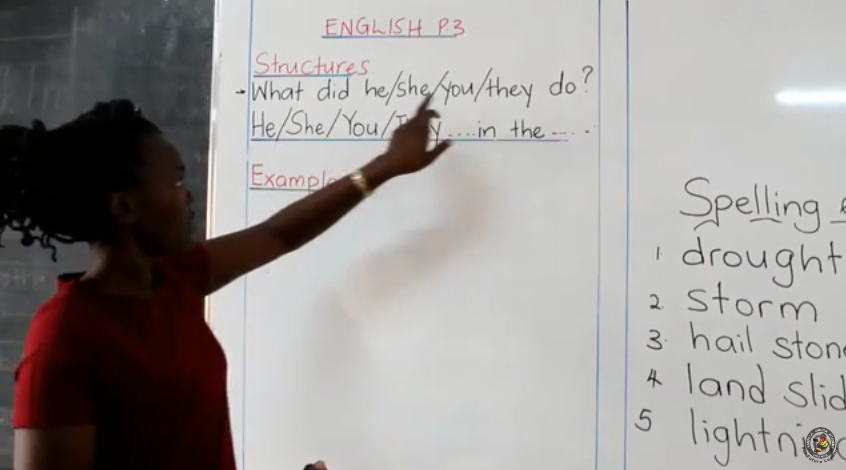 ENGLISH P.3
Structures
- What did he/she/you/they do?
He/She/You/They ....in the .....
Example
Spelling
1 drought
2. storm
3. hail
4 land
5